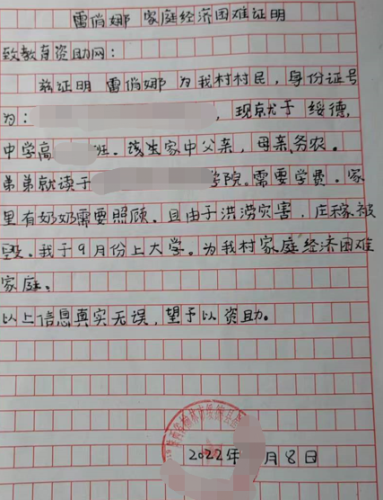 雷俏娜 家庭经济困难证明
致教育资助网：
兹证明 雷俏娜 为我村村民，身份证号
为： ，现就于 绥德，
中学高 班。该生家中父亲，母亲务农。
弟弟就读于 学院。需要学费。家
里有奶奶需要照顾。且由于洪涝灾害，庄稼被
毁。我于9月份上大学。为我村家庭经济困难
家庭。
以上信息真实无误，望予以资助。
2022年 月8日